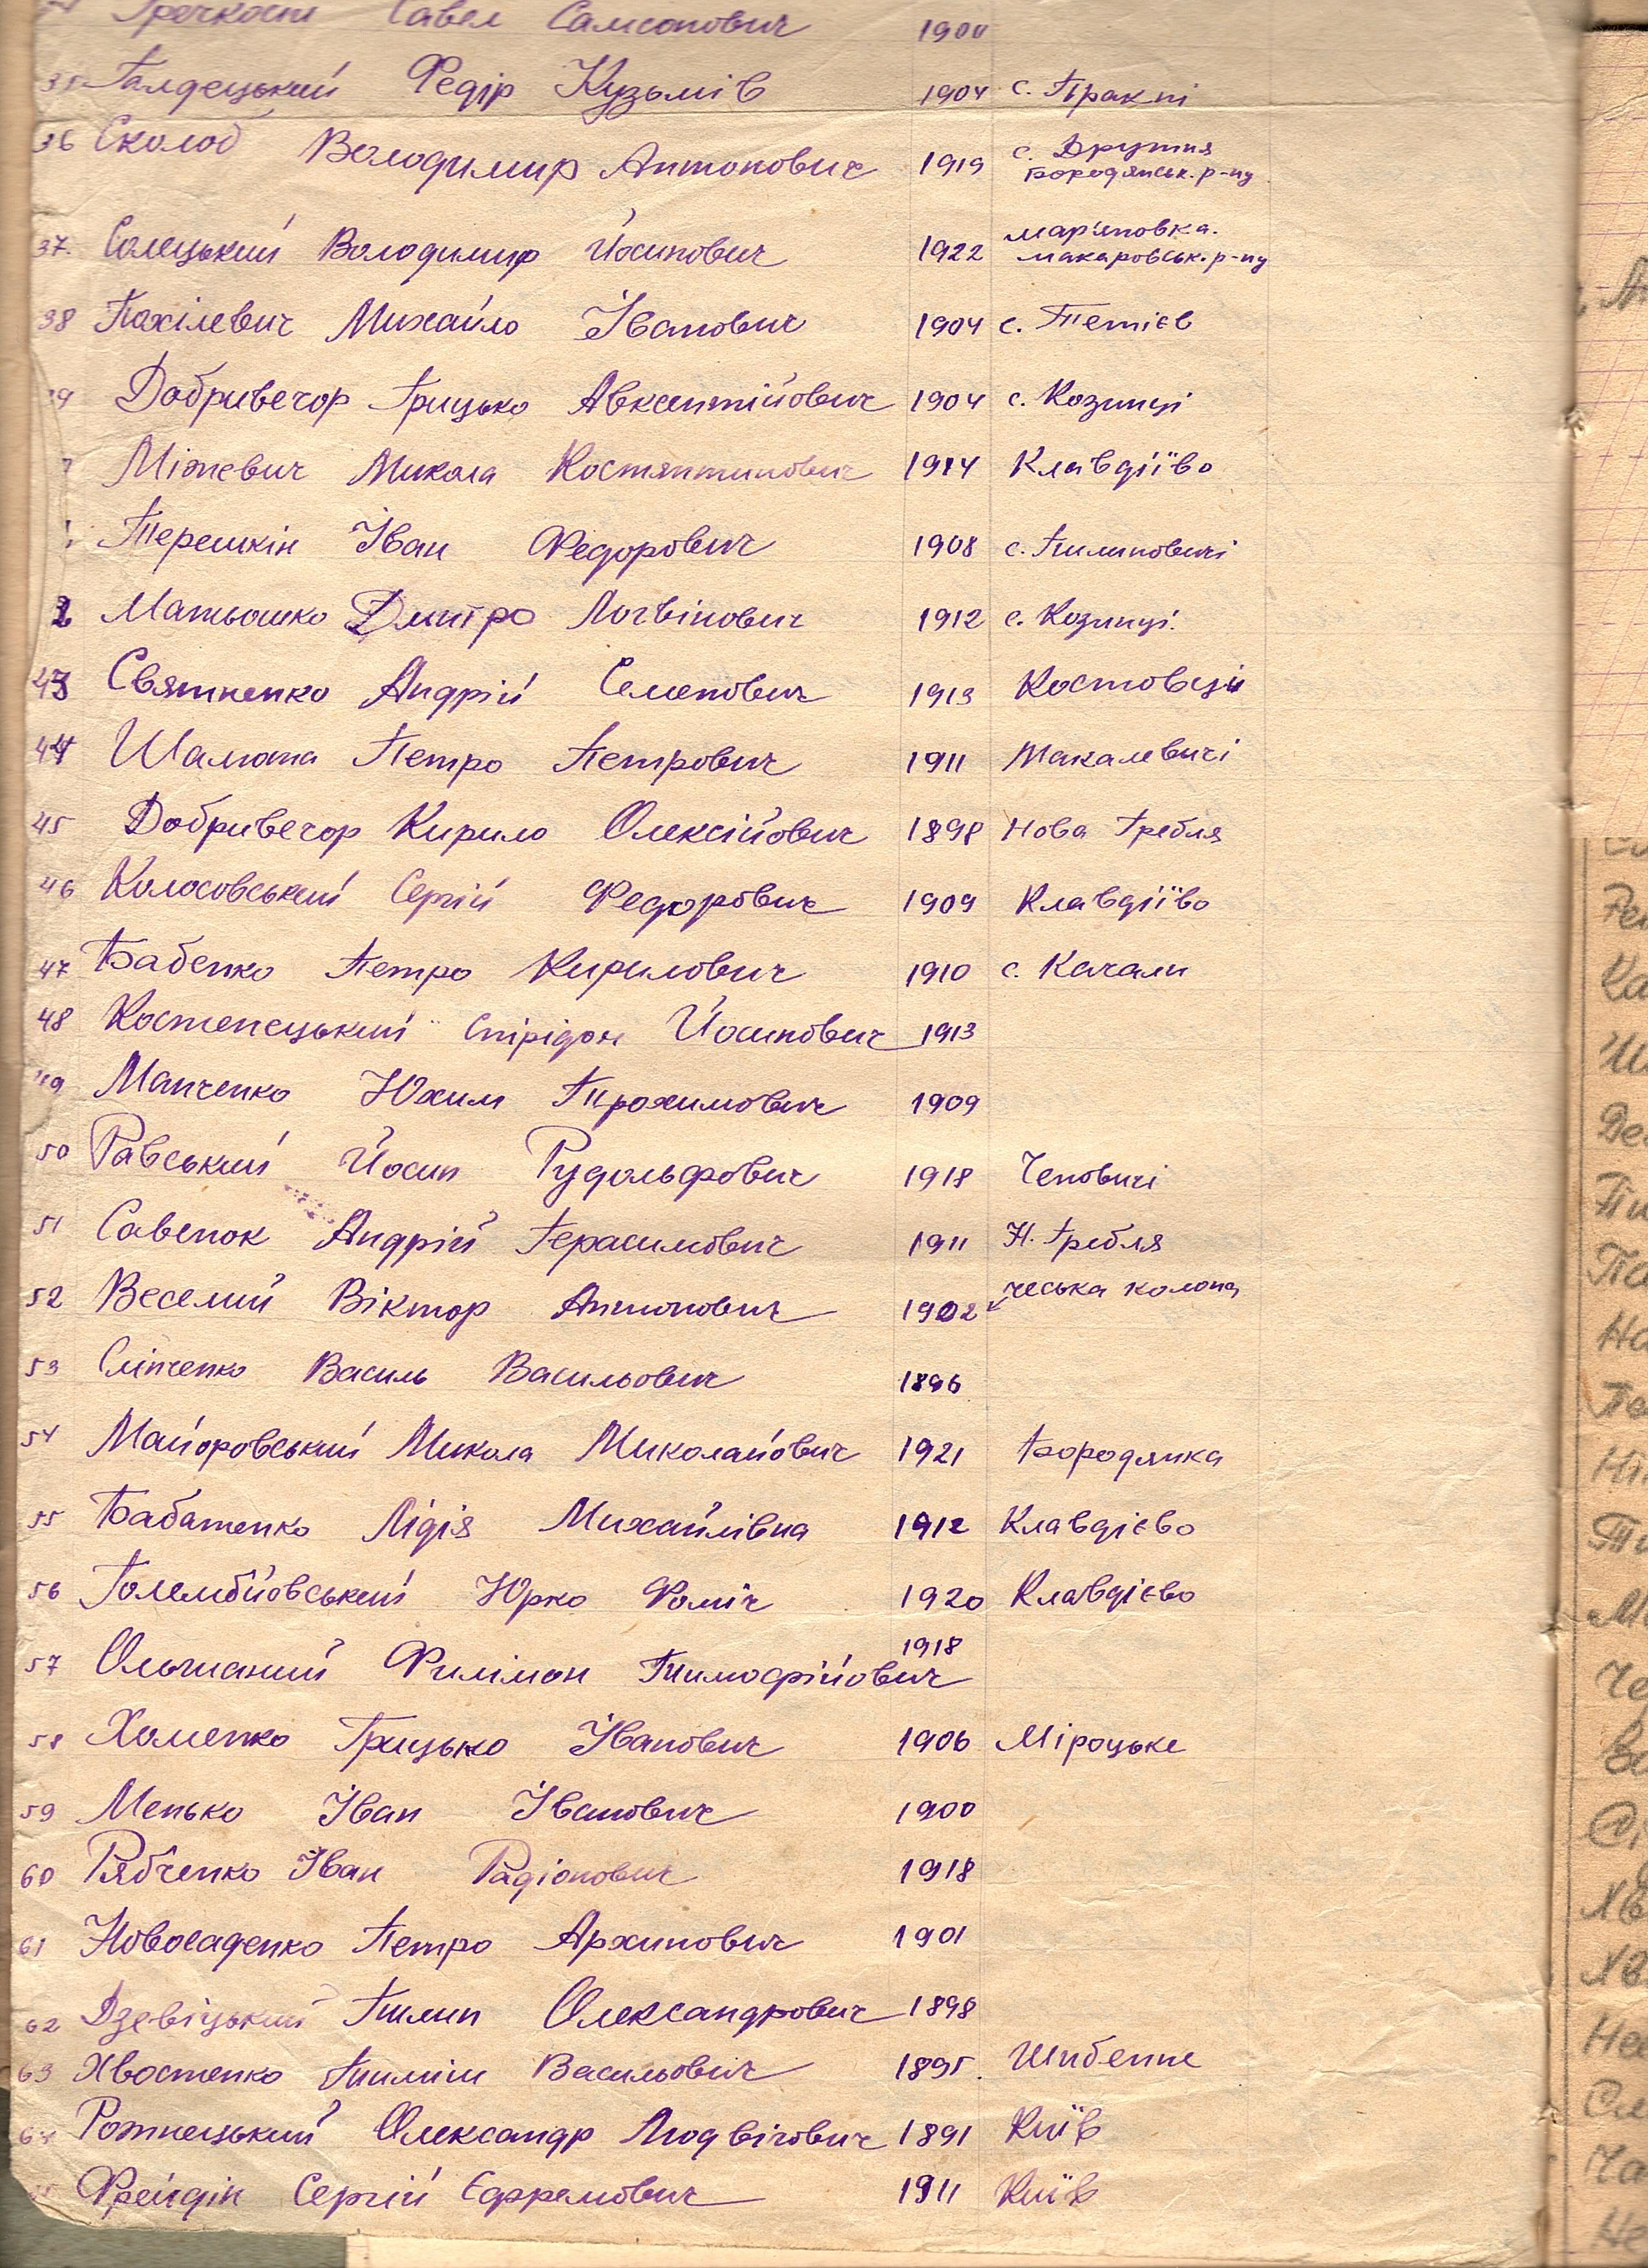 Гречкост Савел Самсонович 1900
35 Галдецький Федір Кузьмів 1904 с. Пракпі
36 Сколоб Володимир Антонович 1919 с. Дружня
Бородянськ. р-ну
37. Солецький Володимир Йосипович 1922 мар'яновка.
макаровськ. р-ну
38 Пахілевич Михайло Іванович 1904 с. Тетієв
39 Добривечор Грицько Авксентійович 1904 с. Козинці
Міжевич Микола Костянтинович 1914 Клавдіїво
Терешкін Іван Федорович 1908 с. Пилиповичі
2 Матьошко Дмитро Логвінович 1912 с. Козинці.
43 Святненко Андрій Семенович 1913 Костовєци
44 Шалюта Петро Петрович 1911 Макалевичі
45 Добривечор Кирило Олексійович 1898 Нова Гребля
46 Колосовський Сергій Федорович 1909 Клавдіїво
47 Бабенко Петро Кирилович 1910 с. Качали
48 Костенецький Спірідон Йосипович 1913
49 Манченко Юхим Трохимович 1909
50 Равський Йосип Рудольфович 1918 Чеповичі
51 Савенок Андрій Герасимович 1911 Н. Гребля
52 Веселий Віктор Антонович 1902 чеська колона
53 Сліпченко Василь Васильович 1896
54 Майоровський Микола Миколайович 1921 Бородянка
55 Бабатенко Лідія Михайлівна 1912 Клавдієво
56 Голембйовський Юрко Фоміч 1920 Клавдієво
57 Ольшаний Филімон Тимофійович 1918
58 Хоменко Грицько Іванович 1906 Міроцьке
59 Менько Іван Іванович 1900
60 Рябченко Іван Радіонович 1918
61 Новосаденко Петро Архипович 1901
62 Дзевіцький Пилип Олександрович 1898
63 Хвостенко Пиліп Васильович 1895. Шибенне
64 Рожнецький Олександр Людвігович 1891 Київ
Фрейдін Сергій Єффремович 1911 Київ